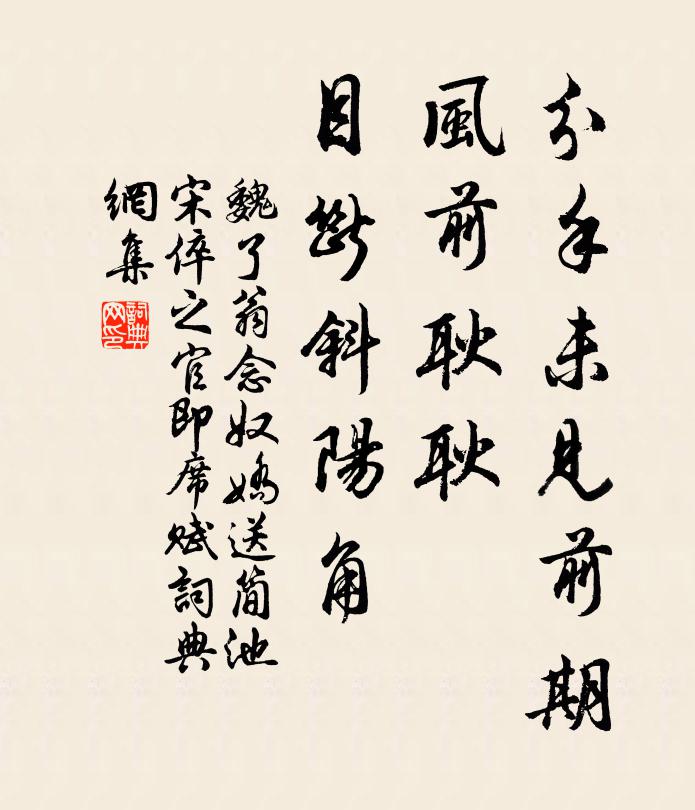 分手未見前期
風前耿耿
目斷斜陽角
魏了翁念奴嬌送簡池
宋倅之官即席賦詞典
網集
詞典
网印